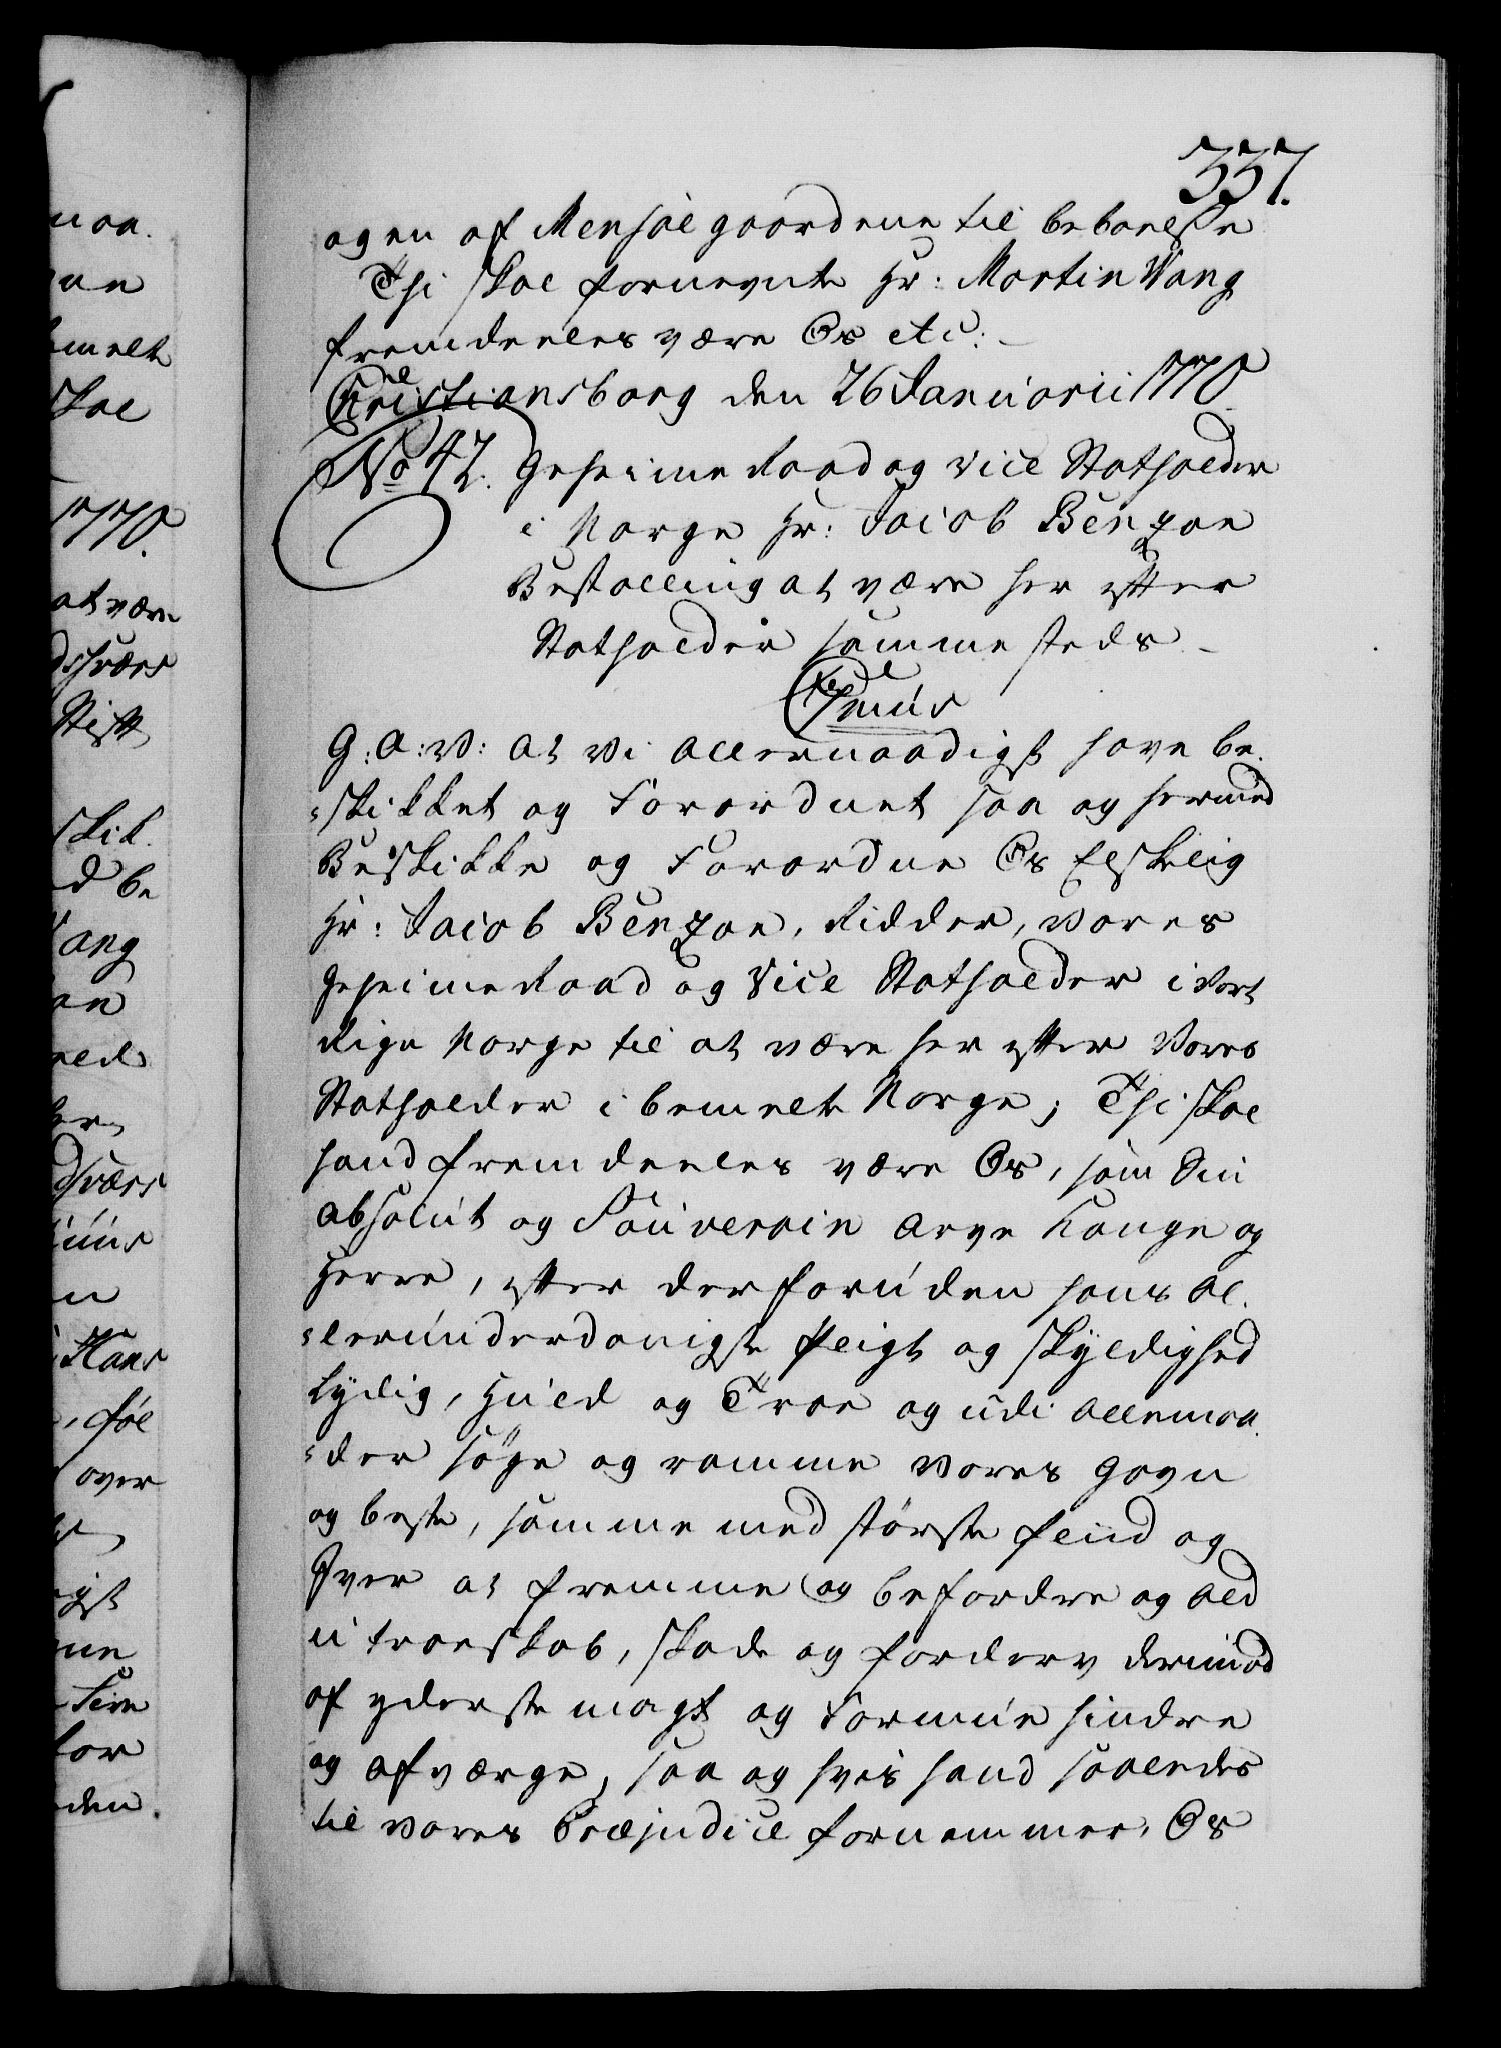 337.
og en af Mensal gaardene til beboelse
Thi skal fornevnte Hr: Mortin Wang
fremdeeles være Os etc:
Christiansborg den 26 Januarii 1770
No 42. Geheime Raad og Vice Statholder
i Norge Hr: Jacob Benzon
Bestalling at være her efter
Statholder sammesteds
G: A: V: At Vi Allernaadigst have be-
-skikket og Forordnet saa og hermed
Beskikke og Forordne Os Elskelig
Hr: Jacob Benzon, Ridder, Vores
Geheime Raad og Vice Statholder i Vort
Rige Norge til at være her efter Vores
Statholder i bemelte Norge; Thi skal
hand fremdeeles være Os, som Sin
absolut og Souverain Arve Konge og
Herre, efter derforuden hans Al-
-lerunderdanigste Pligt og Skyldighed
Lydig, Huld og Troe og udi Allemaa-
-der søge og ramme Vores Gavn
og beste, samme med største Fliid og
Iver at fremme og befordre og Ald
utroeskab, Skade og forderv derimod
af yderste magt og Formue hindre
og afværge, saa og hvis hand saaledes
til Vores Præjudice fornemmer, Os
maa.
skal
1770.
at være
Stift
skik-
d be
ang
Hans
over
for
den.